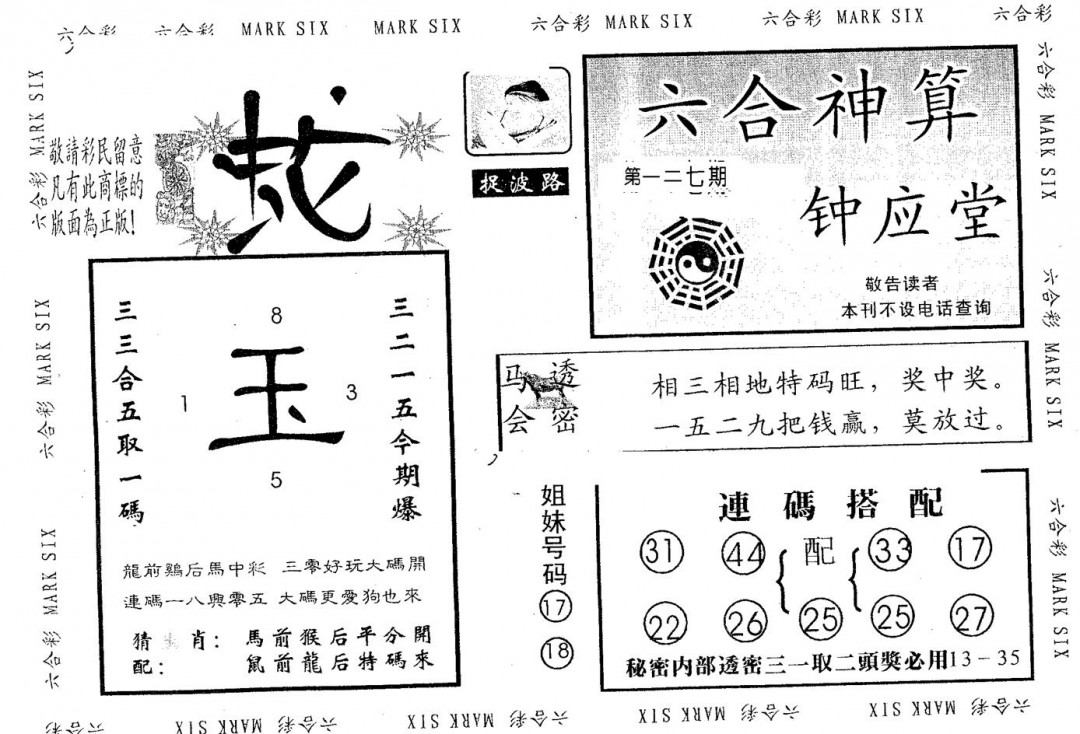 六合彩 六合彩 MARK SIX MARK SIX 六合彩 MARK SIX 六合彩 MARK SIX 六合彩
六合彩 MARK SIX
六合彩 MARK SIX
六合彩 MARK SIX
敬請彩民留意
凡有此商標的
版面為正版!
蛇
捉波路
六合神算
第一二七期
钟应堂
敬告读者
本刊不设电话查询
六合彩 MARK SIX
六合彩 MARK SIX
六合彩 MARK SIX
三三合五取一碼
8
1
玉
3
5
三二一五今期爆
龍前鷄后馬中彩 三零好玩大碼開
連碼一八興零五 大碼更愛狗也來
猜生肖: 馬前猴后平分開
配: 鼠前龍后特碼來
马会
透密
相三相地特码旺,奖中奖。
一五二九把钱赢,莫放过。
姐妹号码
17
18
連碼搭配
31 44 配 33 17
22 26 25 25 27
秘密内部透密三一取二頭獎必用13-35
六合彩 MARK SIX 六合彩 MARK SIX 六合彩 MARK SIX 六合彩 MARK SIX 六合彩